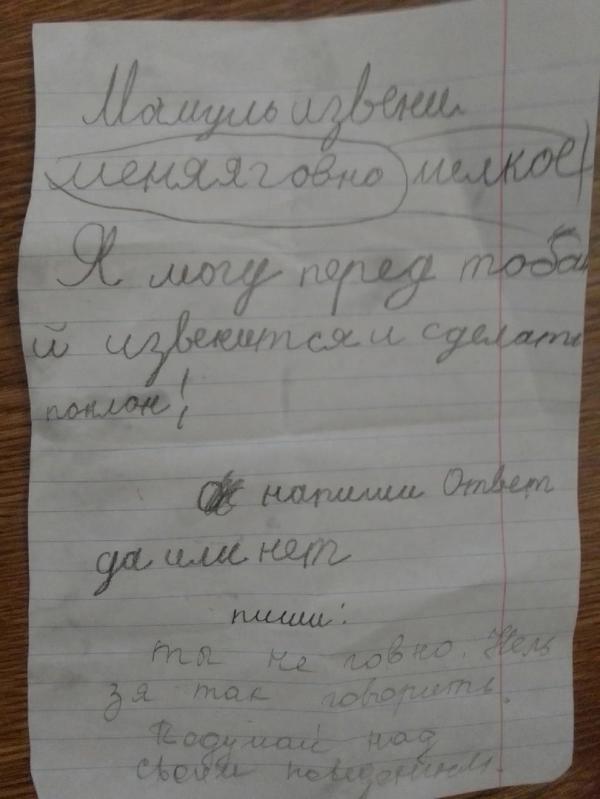 Мамуль извени
меняяговно мелкое!
Я могу перед тоба
й извенится и сделать
поклон!
напиши Ответ
да или нет
пиши:
ты не говно. Нель
зя так говорить.
Подумай над
своим поведением.